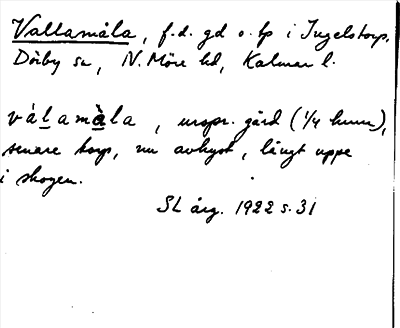 Vallamåla, f.d. gd o. lp i Ingelstorp,
Dörby sn, N. Möre hd, Kalmar l.
válamàla, urspr. gård (1/4 hmn),
senare torp, nu avhyst, långt uppe
i skogen.
SL årg. 1922 s. 31